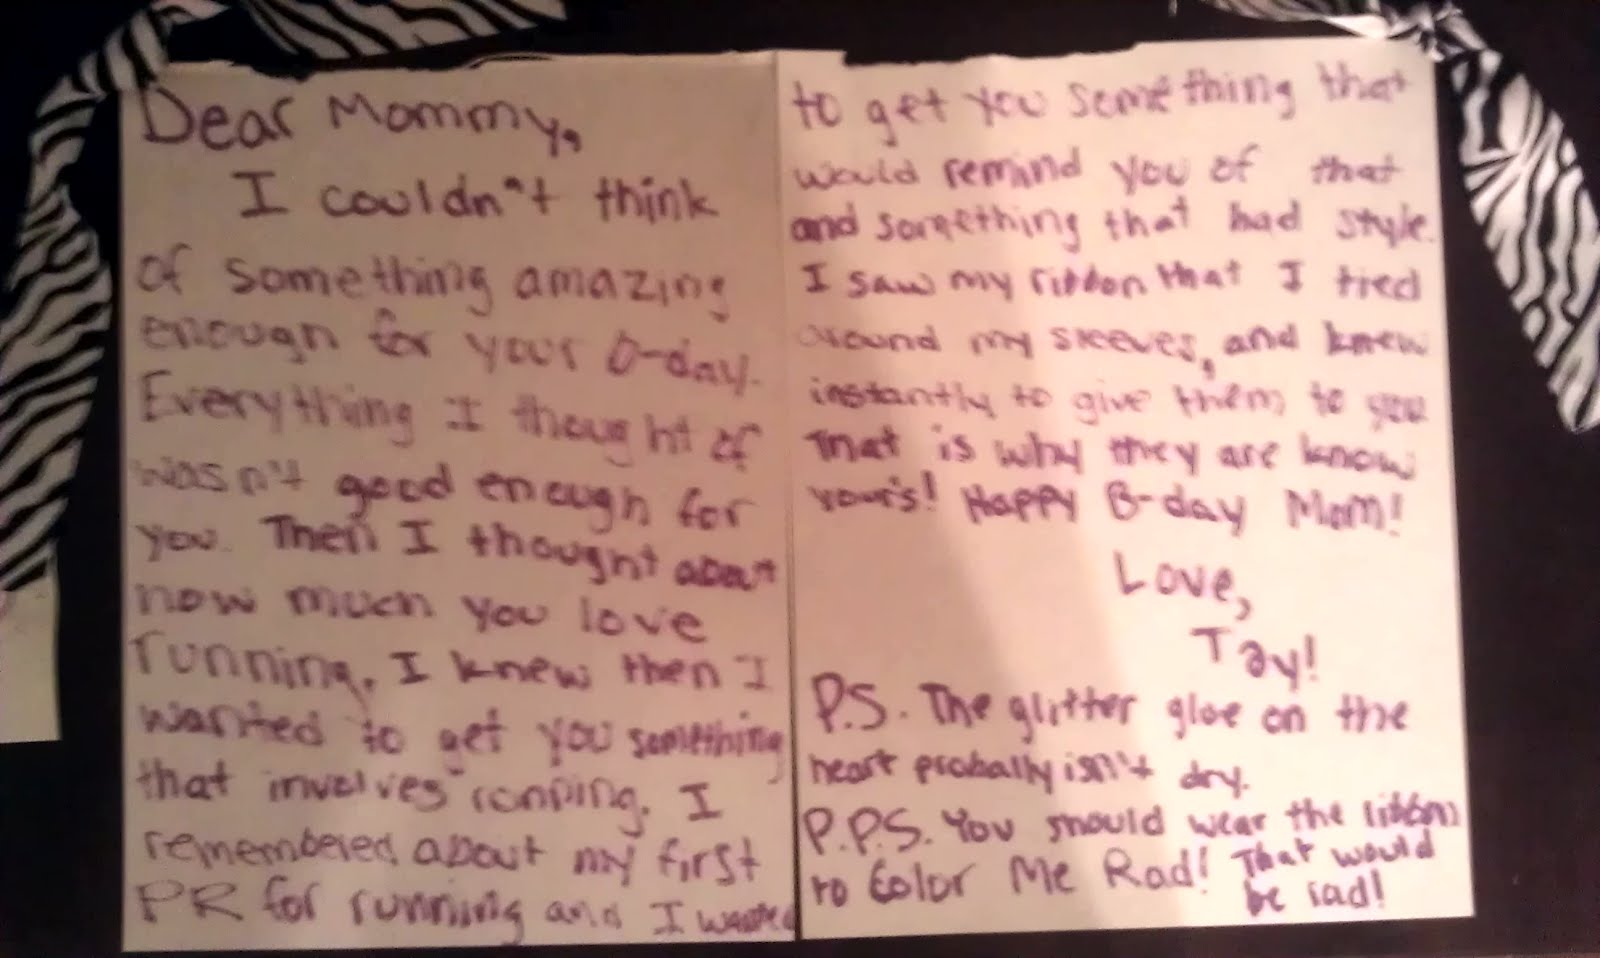 Dear Mommy,
I couldn't think
of something amazing
enough for your b-day.
Everything I thought of
wasn't good enough for
you. Then I thought about
how much you love
running. I knew then I
wanted to get you something
that involves running. I
remembered about my first
PR for running and I wanted
to get you something that
would remind you of that
and something that had style.
I saw my ribbon that I tied
around my sleeves, and knew
instantly to give them to you
that is why they are know
your's! Happy B-day Mom!
Love,
Tay!
P.S. The glitter gloe on the
heart probally isn't dry.
P.P.S. You should wear the ribbon
to Color Me Rad! That would
be rad!